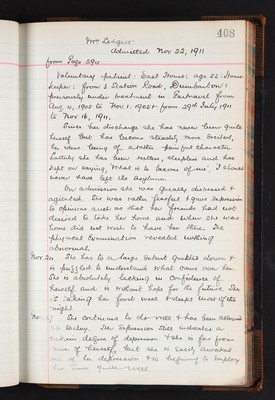 408
Mrs Ledgett
Admitted Nov 22, 1911
from Page 294
Voluntary patient: East House: age 52: House
keeper: from 2 Station Road, Dumbarton:
previously under treatment in Gartnavel from
Aug 4, 1905 to Nov 1, 1905 & from 29th July, 1911
to Nov 16, 1911.
Since her discharge she has never been quite
herself but has become steadily more excited,
her ideas being of a rather painful character.
Latterly she has been restless, sleepless and has
kept on saying, What is to become of me, I should
never have left the Asylum.
On admission she was greatly depressed &
agitated. She was rather fearful & gave expression
to opinions such as that her friends had not
desired to take her home and when she was
home did not wish to have her there. The
physical Examination revealed nothing
abnormal.
Nov. 24 She has to a large extent quieted down &
is puzzled to understand what came over her
She is absolutely lacking in confidence of
herself and is without hope for the future. She
is taking her food well & sleeps most of the
night.
She continues to do well & has been allowed
up today. Her Expression still indicates a
certain degree of depression & she is far from
of herself, but she is easily awaked
out of her depression & is beginning to employ
her time quite well.